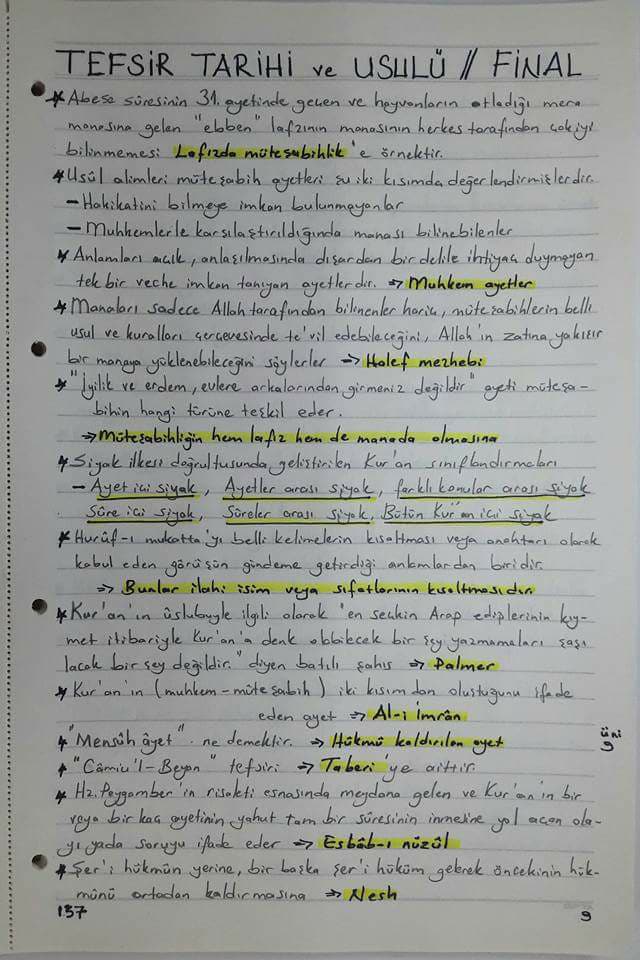 TEFSİR TARİHİ ve USULÜ // FİNAL
* Abese sûresinin 31. ayetinde geçen ve hayvanların otladığı mera
manasına gelen "ebben" lafzının manasının herkes tarafından çok iyi
bilinmemesi Lafızda müteşabihlik'e örnektir.
* Usûl alimleri müteşabih ayetleri şu iki kısımda değerlendirmişlerdir.
- Hakikatini bilmeye imkan bulunmayanlar
- Muhkemlerle karşılaştırıldığında manası bilinebilenler
* Anlamları açık, anlaşılmasında dışardan bir delile ihtiyaç duymayan
tek bir veche imkan tanıyan ayetlerdir. ⇒ Muhkem ayetler
* Manaları sadece Allah tarafından bilinenler hariç, müteşabihlerin belli
usul ve kuralları çerçevesinde te'vil edebileceğini, Allah'ın zatına yakışır
bir manaya yüklenebileceğini söylerler ⇒ Halef mezhebi
* "İyilik ve erdem, evlere arkalarından girmeniz değildir" ayeti müteşa-
bihin hangi türüne teşkil eder.
⇒ Müteşabihliğin hem lafız hem de manada olmasına
* Siyak ilkesi doğrultusunda geliştirilen Kur'an sınıflandırmaları
- Ayet içi siyak, Ayetler arası siyak, farklı konular arası siyak
Sûre içi siyak, Sûreler arası siyak, Bütün Kur'an içi siyak
* Hurûf-ı mukatta'yı belli kelimelerin kısaltması veya anahtarı olarak
kabul eden görüşün gündeme getirdiği anlamlardan biridir.
⇒ Bunlar ilahi isim veya sıfatlarının kısaltmasıdır.
* Kur'an'ın üslubuyla ilgili olarak "en seçkin Arap ediplerinin kıy-
met itibariyle Kur'an'a denk olabilecek bir şey yazmamaları şaşı
lacak bir şey değildir." diyen batılı şahıs ⇒ Palmer
* Kur'an'ın (muhkem-müteşabih) iki kısımdan oluştuğunu ifade
eden ayet ⇒ Al-i İmrân
* "Mensûh âyet" ne demektir. ⇒ Hükmü kaldırılan ayet
* "Câmiu'l-Beyan" tefsiri ⇒ Taberi'ye aittir.
* Hz. Peygamber'in risaleti esnasında meydana gelen ve Kur'an'ın bir
veya bir kaç ayetinin yahut tam bir sûresinin inmesine yol açan ola-
yı yada soruyu ifade eder ⇒ Esbâb-ı nüzûl
* Şer'i hükmün yerine, bir başka şer'i hüküm gelerek öncekinin hük-
münü ortadan kaldırmasına ⇒ Nesh
üni
9
137
9